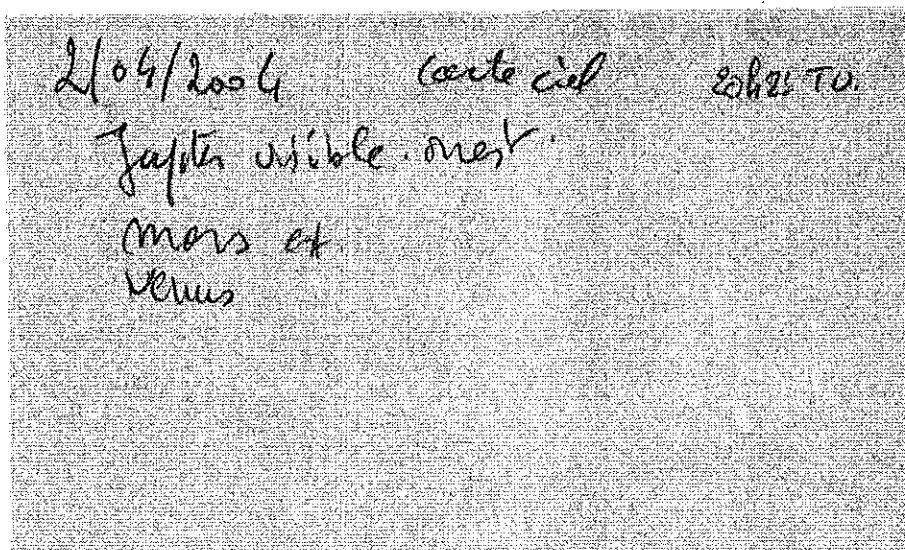 2/04/2004 carte ciel 20h21 TU.
Jupiter visible. ouest.
mars et
venus